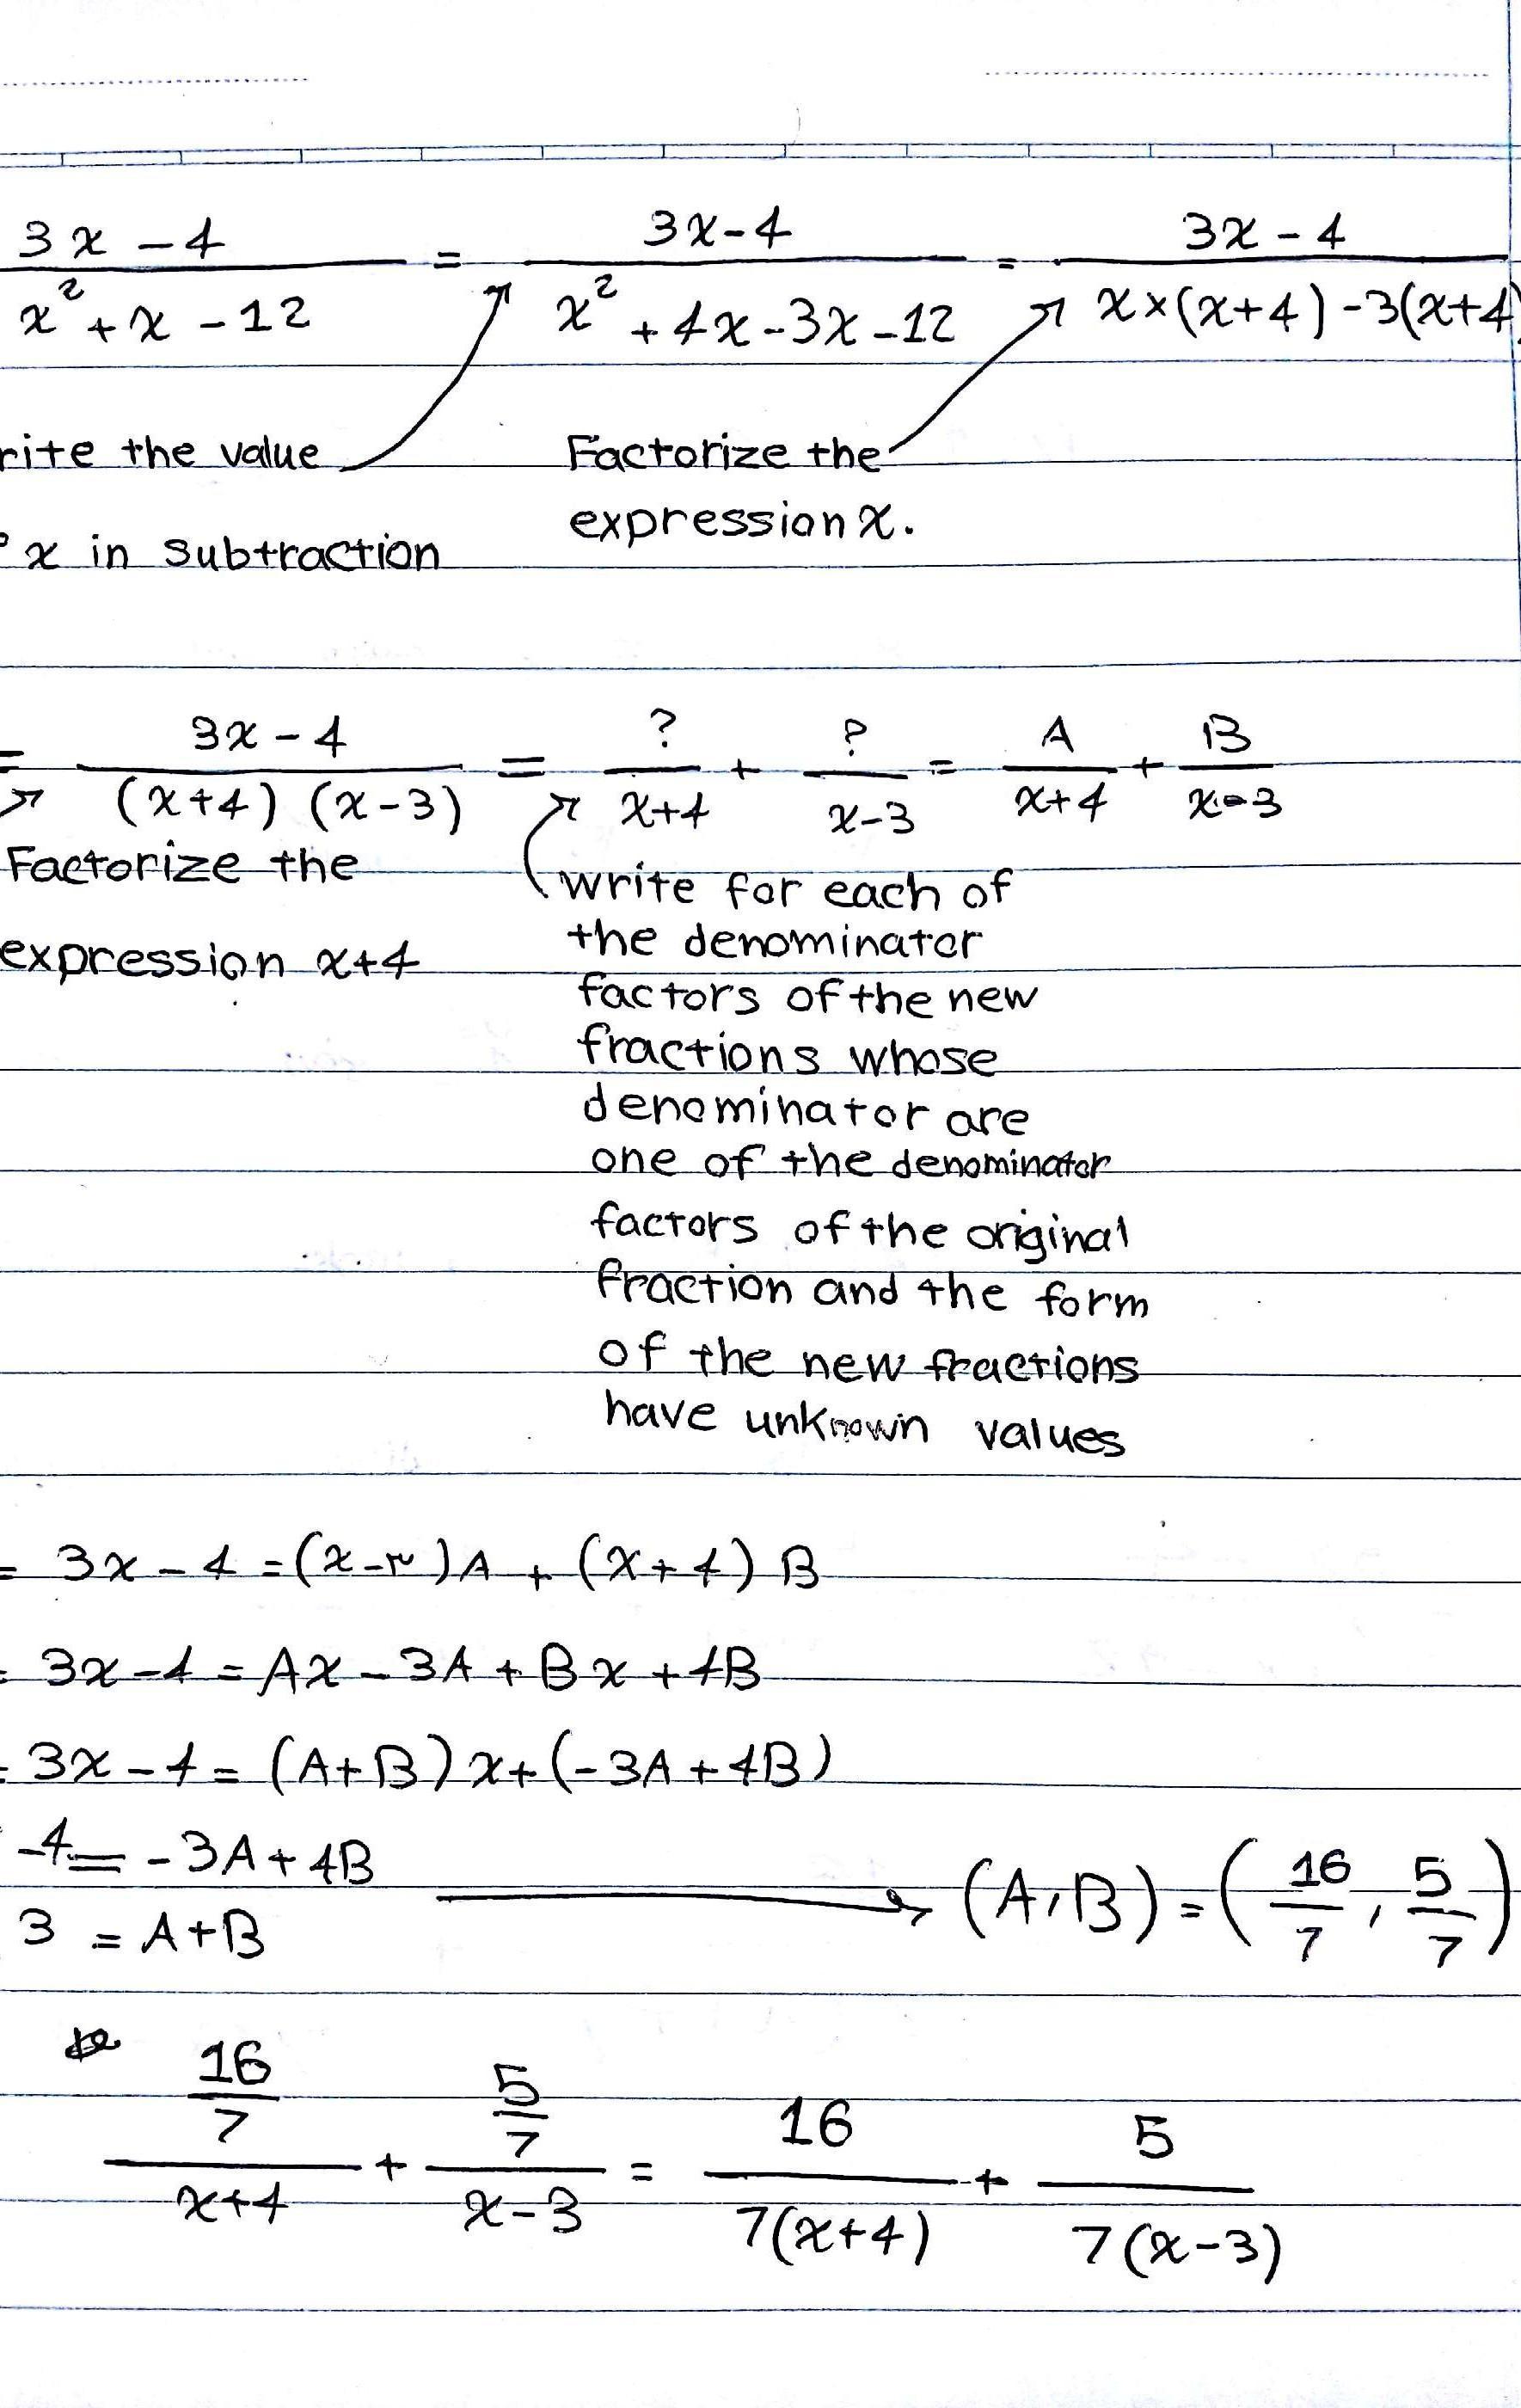 3x - 4 / x² + x - 12 = 3x - 4 / x² + 4x - 3x - 12 = 3x - 4 / x×(x+4) - 3(x+4)
rite the value
x in subtraction
Factorize the
expression x.
= 3x - 4 / (x+4) (x-3) = ? / x+4 + ? / x-3 = A / x+4 + B / x-3
Factorize the
expression x+4
write for each of
the denominator
factors of the new
fractions whose
denominator are
one of the denominator
factors of the original
fraction and the form
of the new fractions
have unknown values
= 3x - 4 = (x-۳)A + (x+4) B
= 3x - 4 = Ax - 3A + Bx + 4B
= 3x - 4 = (A+B) x + (-3A + 4B)
-4 = -3A + 4B
3 = A+B
(A,B) = (16/7, 5/7)
16/7 / x+4 + 5/7 / x-3 = 16 / 7(x+4) + 5 / 7(x-3)